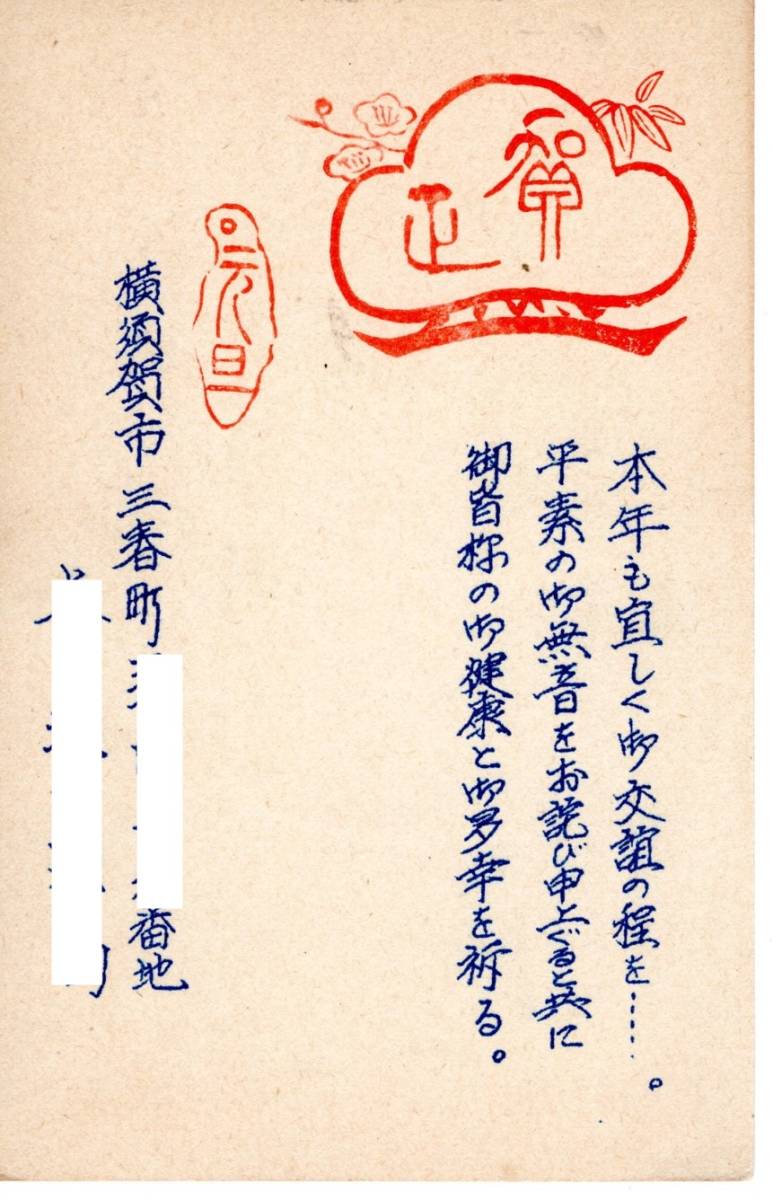 賀正
本年も宜しく御交誼の程を……。
平素の御無音をお詫び申上ぐると共に
御皆様の御健康と御多幸を祈る。
元旦
横須賀市三春町
番地